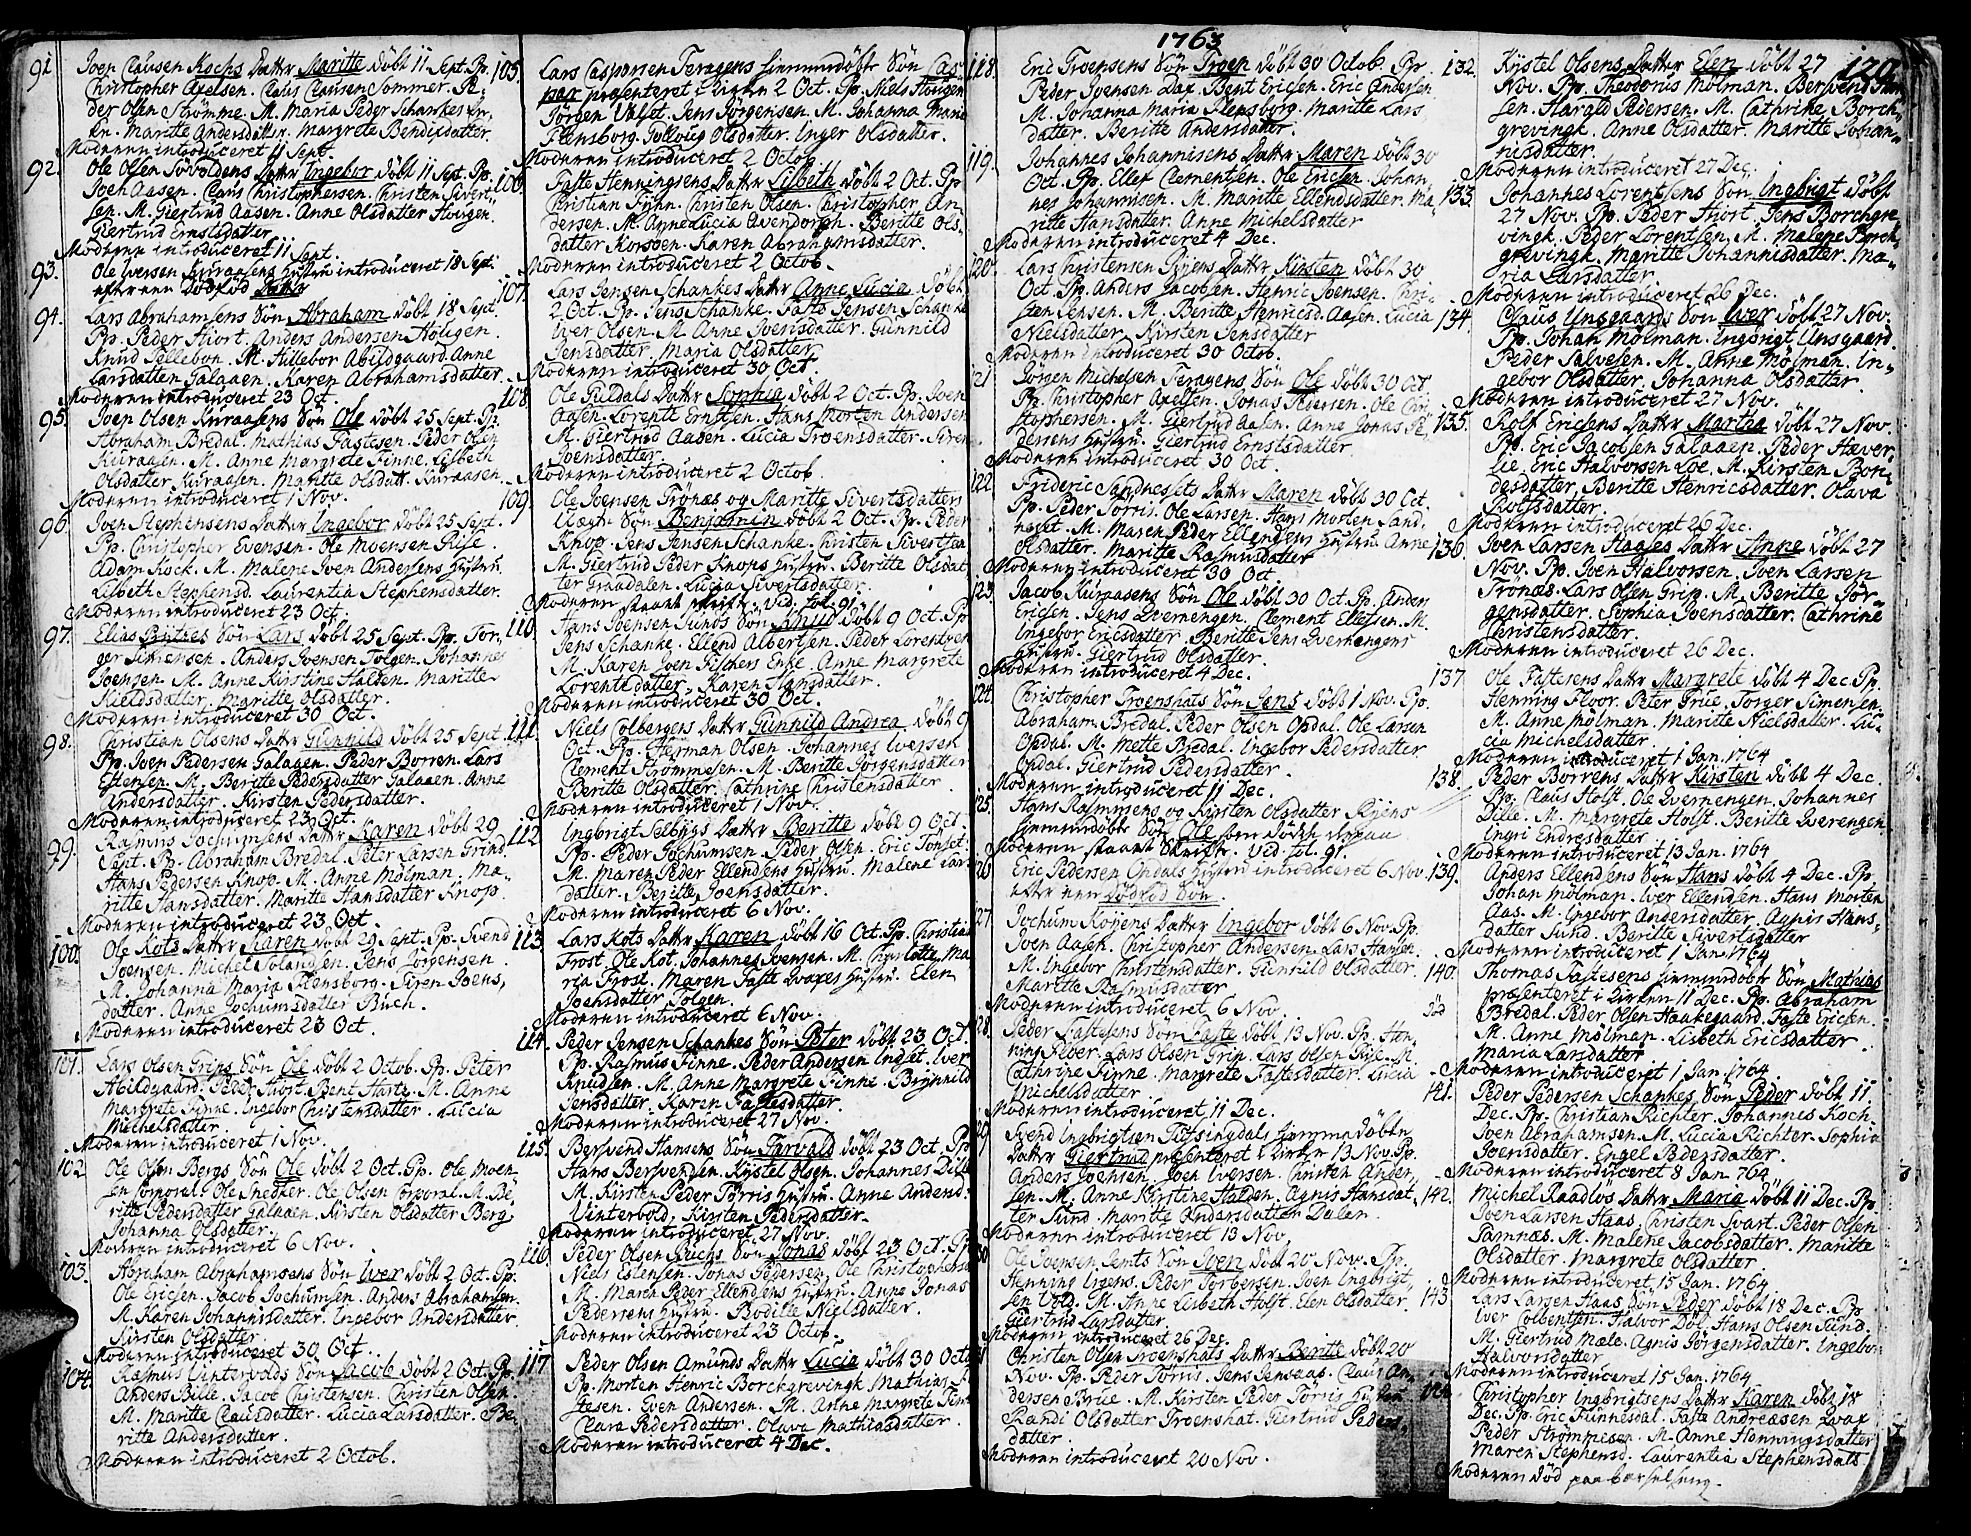 1763
120
91. Joen Clausen Kochs Datter Maritte døbt 11 Sept. Pp.
Christopher Axelsen. Claus Clausen Sommer. Pe-
der Olsen Strømme. M. Maria Peder Schankes En-
ke. Maritte Andersdatter. Margrete Bendixdatter.
Moderen introduceret 11 Sept.
92. Ole Olsen Søvoldens Datter Ingebor døbt 11 Sept. Pp.
Joen Aasen. Claus Christophersen. Christen Sivert-
sen. M. Giertrud Aasen. Anne Olsdatter Hougen.
Giertrud Ernstsdatter
Moderen introduceret 11 Sept.
93. Ole Iversen Kuraasens Hustru introduceret 18 Sept.
efter een Dødfød Datter
94. Lars Abrahamsens Søn Abraham døbt 18 Sept.
Pp. Peder Hiort. Anders Andersen Hougen.
Knud Tellebon. M. Hillebor Abildgaard. Anne
Larsdatter Galaaen. Karen Abrahamsdatter.
Moderen introduceret 23 Oct.
95. Joen Olsen Kuraasens Søn Ole døbt 25 Sept. Pp.
Abraham Bredal. Mathias Fastesen. Peder Olsen
Kuraasen. M. Anne Margrete Finne. Lisbeth
Olsdatter Kuraasen. Maritte Olsdatt. Kuraasen.
Moderen introduceret 1 Nov.
96. Joen Stephensens Datter Ingebor døbt 25 Sept.
Pp. Christopher Evensen. Ole Moensen Riise.
Adam Kock. M. Malene Joen Andersens Hustru.
Lisbeth Stephensd. Laurentia Stephensdatter.
Moderen introduceret 23 Oct.
97. Elias Søn Lars døbt 25 Sept. Pp. Tor-
ger Simensen. Anders Joensen Tolgen. Johannes
Joensen. M. Anne Kirstine Halden. Maritte
Nielsdatter. Maritte Olsdatter.
Moderen introduceret 30 Oct.
98. Christian Olsens Datter Gunnild døbt 25 Sept.
Pp. Joen Pedersen Galaaen. Peder Borren. Lars
Estensen. M. Beritte Pedersdatter Galaaen. Anne
Andersdatter. Kirsten Pedersdatter.
Moderen introduceret 23 Oct.
99. Rasmus Jochumsens Datter Karen døbt 29
Sept. Pp. Abraham Bredal. Peter Larsen Grind.
Hans Pedersen Knop. M. Anne Mølman. Ma-
ritte Hansdatter. Maritte Hansdatter Knop.
Moderen introduceret 23 Oct.
100. Ole Kots Datter Karen døbt 29 Sept. Pp. Svend
Joensen. Michel Solandsen. Jens Jørgensen.
M. Johanna Maria Flensborg. Siren Joens,
datter. Anne Jochumsdatter Buch.
Moderen introduceret 23 Oct.
101. Lars Olsen Grips Søn Ole døbt 2 Octob. Pp. Peter
Abildgaard. Peder Hiort. Bent Harte. M. Anne
Margrete Finne. Ingebor Christensdatter. Lucia
Michelsdatter.
Moderen introduceret 1 Nov.
102. Ole Olsen Bergs Søn Ole døbt 2 Oct. Pp. Ole Moen-
sen Corporal. Ole Snedker. Ole Olsen Corporal. M. Be-
ritte Pedersdatter Galaaen. Kirsten Olsdatter Berg.
Johanna Olsdatter.
Moderen introduceret 6 Nov.
103. Abraham Abrahamsens Søn Iver døbt 2 Oct. Pp.
Ole Ericsen. Jacob Jochumsen. Anders Abrahamsen.
M. Karen Johannisdatter. Ingebor Andersdatter.
Kirsten Olsdatter.
Moderen introduceret 30 Oct.
104. Rasmus Vintervolds Søn Jacob døbt 2 Oct. Pp.
Anders Bille. Jacob Christensen. Christen Olsen.
M. Maritte Clausdatter. Lucia Larsdatter. Be-
ritte Andersdatter.
Moderen introduceret 2 Octob.
105. Lars Caspersen Feragens hiemmedøbte Søn Cas-
par præsenteret i Kirken 2 Oct. Pp. Niels Hougen.
Jørgen Valset. Jens Jørgensen. M. Johanna Maria
Flensborg. Gollvig Olsdatter. Inger Olsdatter.
Moderen introduceret 2 Octob.
106. Faste Henningsens Datter Lisbeth døbt 2 Oct. Pp.
Christian Finne. Christen Olsen. Christopher An-
dersen. M. Anne Lucia Avendorph. Beritte Ols-
datter Korsøen. Karen Abrahamsdatter.
Moderen introduceret 2 Octob.
107. Lars Jensen Schankes Datter Anne Lucia døbt
2 Oct. Pp. Jens Schanke. Faste Jensen Schanke
Iver Olsen. M. Anne Joensdatter. Gunnild
Jensdatter. Maria Olsdatter
Moderen introduceret 30 Oct.
108. Ole Fuldals Datter Sophia døbt 2 Oct. Pp. Joen
Aasen. Lorentz Erntsen. Hans Morten Andersen
M. Giertrud Aasen. Lucia Troensdatter. Siren
Joensdatter.
Moderen introduceret 2 Octob.
109. Ole Joensen Trønæs og Maritte Sivertsdatters
Uægte Søn Benjamin døbt 2 Oct. Pp. Peder
Knop. Jens Jensen Schanke. Christen Sivertsen
M. Giertrud Peder Knops Hustru. Beritte Olsdat-
ter Graadalen. Lucia Sivertsdatter.
Moderen staaet skrift. Vid. fol. 91.
110. Hans Joensen Sunds Søn Knud døbt 9 Oct. Pp.
Jens Schanke. Ellend Albertsen. Peder Lorentzen
M. Karen Joen Fischers Enke. Anne Margrete
Lorentsdatter. Karen Hansdatter.
Moderen introduceret 30 Oct.
111. Niels Colbergens Datter Gunnild Andrea døbt 9
Oct. Pp. Herman Olsen. Johannes Iversen
Clement Strømmesen. M. Beritte Jørgensdatter
Beritte Olsdatter. Cathrine Christensdatter.
Moderen introduceret 1 Nov.
112. Ingbrigt Selbyigs Datter Beritte døbt 9 Oct.
Pp. Peder Jochumsen. Peder Olsen. Eric Tønset.
M. Maren Peder Ellendsens Hustru. Malene Lars
datter. Beritte Joensdatter.
Moderen introduceret 6 Nov.
113. Lars Kots Datter Karen døbt 16 Oct. Pp. Christian
Frost. Ole Kot. Johannes Svensen. M. Charlotte Ma-
ria Frost. Maren Faste Qvaxes Hustru. Elen
Joensdatter Tolgen.
Moderen introduceret 6 Nov.
114. Peder Jensen Schankes Søn Peter døbt 23 Oct.
Pp. Rasmus Finne. Peder Andersen Indset. Iver
Knudsen. M. Anne Margrete Finne. Brynnild
Jensdatter. Karen Fastesdatter.
Moderen introduceret 27 Nov.
115. Bersvend Hansens Søn Harvald døbt 23 Oct. Pp.
Hans Bersvendsen. Kystel Olsen. Johannes Dille
M. Kirsten Peder Tørris Hustru. Anne Andersd.
Vintervold. Kirsten Pedersdatter.
Moderen introduceret 27 Nov.
116. Peder Olsen Buchs Søn Jonas døbt 23 Oct. Pp.
Niels Estensen. Jonas Pedersen. Ole Christophersen
M. Maren Peder Ellendsens Hustru. Anne Jonas
Pedersens Hustru. Bodille Nielsdatter.
Moderen introduceret 23 Octob.
117. Peder Olsen Amunds Datter Lucia døbt 30 Octob
Pp. Morten Henric Borckgrevingk. Mathias Fa-
stesen. Even Andersen. M. Anne Margrete Finne
Clara Pedersdatter. Olava Mathiasdatter.
Moderen introduceret 4 Dec.
118. Eric Troensens Søn Troen døbt 30 Octob. Pp.
Peder Svensen Dax. Bent Ericsen. Eric Andersen
M. Johanna Maria Flensborg. Maritte Lars
datter. Beritte Andersdatter.
119. Johannes Johannisens Datter Maren døbt 30
Oct. Pp. Ellef Clementsen. Ole Ericsen. Johan,
nes Johannisen. M. Maritte Ellendsdatter. Ma-
ritte Hansdatter. Anne Michelsdatter
Moderen introduceret 4 Dec.
120. Lars Christensen Ryens Datter Kirsten døbt 30
Oct. Pp. Anders Jacobsen. Henric Joensen. Chri-
sten Jensen. M. Beritte Henricsd. Aasen. Lucia
Nielsdatter. Kirsten Jensdatter
Moderen introduceret 30 Octob.
121 Jørgen Michelsen Feragens Søn Ole døbt 30 Oct.
Pp. Christopher Axelsen. Jonas Pedersen. Ole Chri-
stophersen. M. Giertrud Aasen. Anne Jonas Pe-
dersens Hustru. Giertrud Ernstsdatter.
Moderen introduceret 30 Oct.
122 Frideric Sandnessets Datter Maren døbt 30 Oct.
Pp. Peder Tørris. Ole Larsen. Hans Morten Sand-
neset. M. Maren Peder Ellendsens Hustru. Anne
Olsdatter. Maritte Rasmusdatter
Moderen introduceret 30 Oct.
123. Jacob Kuraasens Søn Ole døbt 30 Oct. Pp. Anders
Ericsen. Jens Qvernengen. Clement Ellefsen. M.
Ingebor Ericsdatter. Beritte Jens Qvernengens
Hustru. Giertrud Olsdatter.
Moderen introduceret 4 Dec.
124. Christopher Troenshats Søn Jens døbt 1 Nov. Pp.
Abraham Bredal. Peder Olsen Opdal. Ole Larsen
Opdal. M. Mette Bredal. Ingebor Pedersdatter
Opdal. Giertrud Pedersdatter.
Moderen introduceret 11 Dec.
125. Hans Rasmusens og Kirsten Olsdatter Ryens
hiemmedøbte Søn Ole som døde derpaa
Moderen staaet Skrifte. Vid. fol. 91.
126 Eric Pedersen Opdals Hustru introduceret 6 Nov.
efter een Dødfød Søn.
127. Jochum Koyens Datter Ingebor døbt 6 Nov. Pp.
Joen Aasen. Christopher Andersen. Lars Hansen.
M. Ingebor Christensdatter. Gunnild Olsdatter.
Maritte Rasmusdatter
Moderen introduceret 6 Nov.
128. Peder Fastesens Søn Faste døbt 13 Nov. Pp. Hen-
ning Floer. Lars Olsen Grip. Lars Olsen Riise. M.
Cathrine Finne. Margrete Fastesdatter. Lucia
Michelsdatter
Moderen introduceret 11 Dec.
129 Svend Ingbrigtsen Tufsingdals hiemmedøbte
Datter Giertrud præsenteret i Kirken 13 Nov. Pp.
Anders Joensen. Joen Iversen. Christen Ander,
sen. M. Anne Kirstine Halden. Agnis Hansdat-
ter Sund. Maritte Andersdatter Dalen.
Moderen introduceret 13 Nov.
130 Ole Joensen Jemts Søn Joen døbt 20 Nov. Pp.
Henning Irgens. Peder Torbersen. Joen Ingbrigt,
sen Vold. M. Anne Lisbeth Holst. Elen Olsdatter.
Giertrud Larsdatter.
Moderen introduceret 26 Dec.
131 Christen Olsen Troenshats Datter Beritte døbt 20
Nov. Pp. Peder Tørris. Jens Jensaap. Claus An-
dersen Brue. M. Kirsten Peder Tørris Hustru.
Randi Olsdatter Troenshat. Giertrud Peders-
datter
Moderen introduceret 20 Nov.
132. Kystel Olsens Datter Elen døbt 27
Nov. Pp. Theodorus Mølman. Bersvend Han-
sen. Harald Pedersen. M. Cathrine Borch-
grevingk. Anne Olsdatter. Maritte Johan-
nisdatter.
Moderen introduceret 27 Dec.
133. Johannes Lorentsens Søn Ingbrigt døbt
27 Nov. Pp. Peder Hiort. Jens Borchgre
vingk. Peder Lorentsen. M. Malene Borch,
grevingk. Maritte Johannisdatter. Ma-
ria Larsdatter.
Moderen introduceret 26 Dec.
134. Claus Unsgaards Søn Iver døbt 27 Nov.
Pp. Johan Mølman. Ingbrigt Unsgaard.
Peder Salvesen. M. Anne Mølman. In-
gebor Olsdatter. Johanna Olsdatter.
Moderen introduceret 27 Nov.
135. Rolf Ericsens Datter Martha døbt 27 Nov.
Pp. Eric Jacobsen Galaaen. Peder Haver-
lie. Eric Halvorsen Loe. M. Kirsten Bon-
desdatter. Beritte Henricsdatter. Olava
Rolfsdatter.
Moderen introduceret 26 Dec.
136. Joen Larsen Haases Datter Anne døbt 27
Nov. Pp. Joen Halvorsen. Joen Larsen
Trønæs. Lars Olsen Grip. M. Beritte Jør-
gensdatter. Sophia Joensdatter. Cathrine
Christensdatter.
Moderen introduceret 26 Dec.
137. Ole Fasterens Datter Margrete døbt 4 Dec. Pp.
Henning Floor. Peter Grue. Torger Simensen.
M. Anne Mølman. Maritte Nielsdatter. Lu-
cia Michelsdatter.
Moderen introduceret 1 Jan. 1764
138. Peder Borrens Datter Kirsten døbt 4 Dec.
Pp. Claus Holst. Ole Qvernengen. Johannes
Dille. M. Margrete Holst. Beritte Qverengen
Ingri Endresdatter
Moderen introduceret 13 Jan. 1764
139. Anders Ellendsens Søn Hans døbt 4 Dec. Pp.
Johan Mølman. Iver Ellendsen. Hans Morten
Aas. M. Ingebor Andersdatter. Agnis Hans-
datter Sund. Beritte Sivertsdatter
Moderen introduceret 1 Jan 1764
140. Thomas Fastesens hiemmedøbte Søn Mathias
død præsenteret i Kirken 11 Dec. Pp. Abraham
Bredal. Peder Olsen Haakegaard. Faste Ericsen.
M. Anne Mølman. Lisbeth Ericsdatter.
Maria Larsdatter
Moderen introduceret 1 Jan. 1764.
141. Peder Pedersen Schankes Søn Peder døbt 11
Dec. Pp. Christian Richter. Johannes Koch.
Joen Abrahamsen. M. Lucia Richter. Sophia
Joensdatter. Engel Pedersdatter.
Moderen introduceret 8 Jan. 1764
142. Michel Raadløs Datter Maria døbt 11 Dec. Pp.
Joen Larsen Haas. Christen Svart. Peder Olsen
Samnæs. M. Malene Jacobsdatter. Maritte
Olsdatter. Margrete Olsdatter
Moderen introduceret 15 Jan. 1764
143 Lars Larsen Haas Søn Peder døbt 18 Dec. Pp.
Iver Colbentsen. Halvor Døl. Hans Olsen Sund.
M. Giertrud Mæle. Agnis Jørgensdatter. Ingebor
Halvorsdatter
Moderen introduceret 15 Jan. 1764
144. Christopher Ingbrigtsens Datter Karen døbt 18
Dec. Pp. Eric Funnesdal. Faste Andreæsen Qvax
Peder Strømmesen. M. Anne Henningsdatter
Maren Stephensd. Laurentia Stephensdatt.
Moderen død paa barselseng.